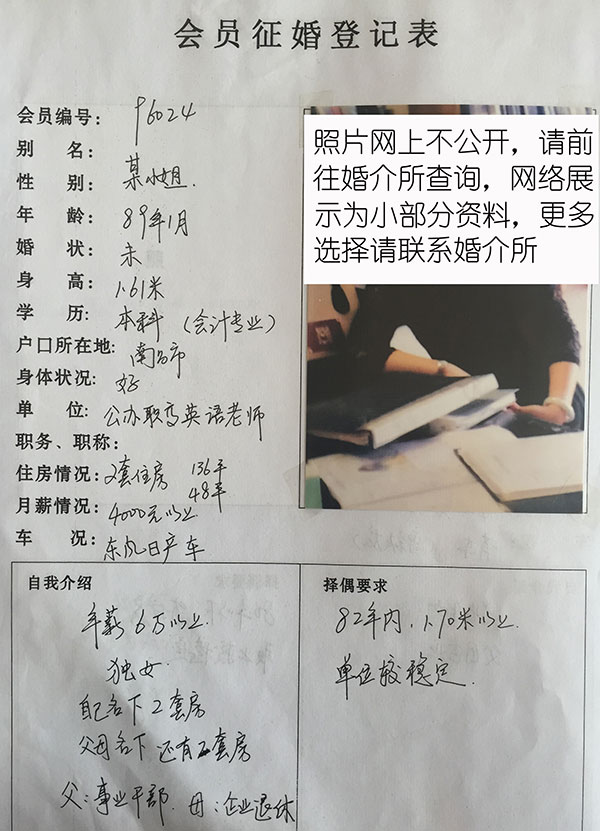 会员征婚登记表
会员编号: 96024
别 名: 某小姐.
性 别:
年 龄: 89年1月
婚 状: 未
身 高: 1.61米
学 历: 本科 (会计专业)
户口所在地: 南昌市
身体状况: 好
单 位: 公办职高英语老师
职务、职称:
住房情况: 2套住房 136平
48平
月薪情况: 4000元以上
车 况: 东风日产车
照片网上不公开，请前
往婚介所查询，网络展
示为小部分资料，更多
选择请联系婚介所
自我介绍
年薪6万以上.
独女.
自己名下2套房
父母名下还有套房
父:事业干部. 母:企业退休
择偶要求
82年内, 1.70米以上.
单位较稳定.